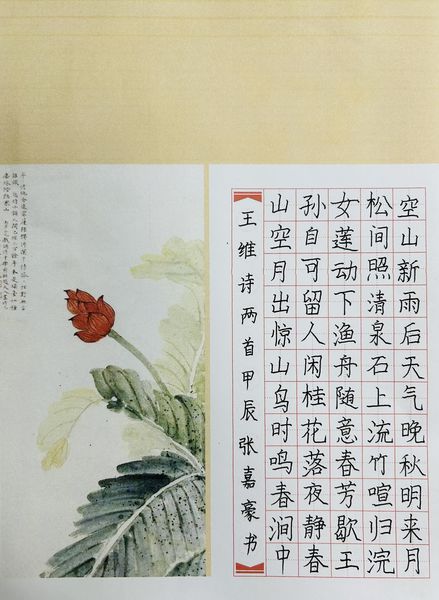 空山新雨后天气晚秋明来月
松间照清泉石上流竹喧归浣
女莲动下渔舟随意春芳歇王
孙自可留人闲桂花落夜静春
山空月出惊山鸟时鸣春涧中
王维诗两首甲辰张嘉豪书